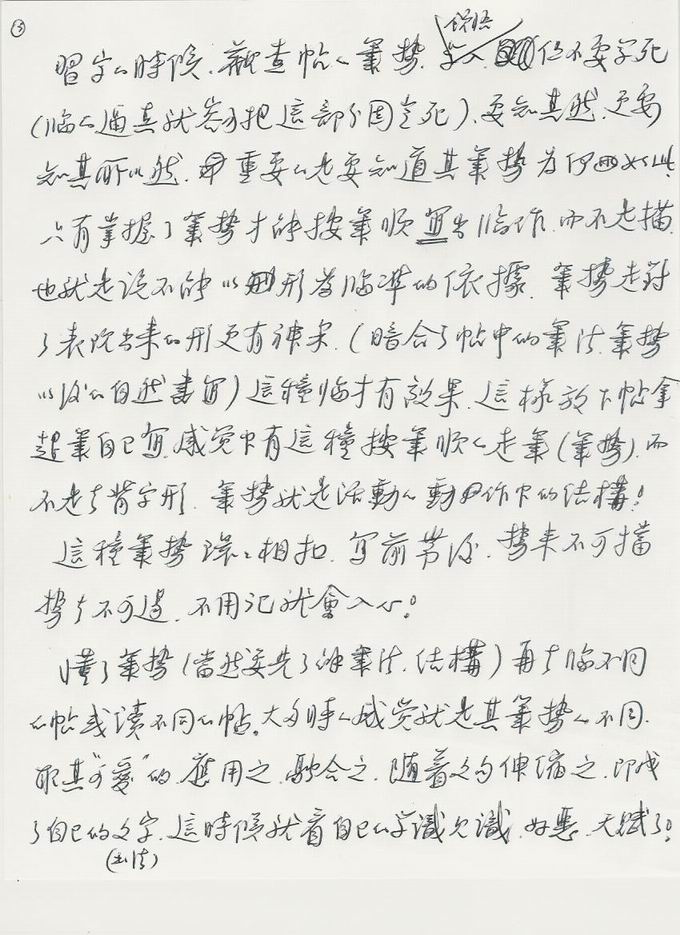 ③
習字的時候.觀查帖的筆勢.學入領悟但不要學死
(臨的逼真就容易把這部分固定死).要知其然.更要
知其所以然.重要的是要知道其筆勢為何如此.
只有掌握了筆勢才能按筆順寫出臨作.而不是描.
也就是說不能以形為臨準的依據.筆勢走對
了表現出來的形更有神采.(暗合了帖中的筆法.筆勢
以後的自然書寫)這種臨才有效果.這樣放下帖拿
起筆自己寫.感觉只有這種按筆順的走筆(筆勢).而
不是去背字形.筆勢就是活動的動作下的结構!
這種筆勢環環相扣.寫前帶後.勢来不可擋
勢去不可遏.不用记就會入心!
懂了筆勢(當然要先了解筆法.结構)再去臨不同
的帖或讀不同的帖。大多時的感觉就是其筆勢的不同.
取其"可愛"的.應用之.融合之.隨着文句伸縮之.即成
了自己的文字.這時候就看自己的學識.好惡.天賦了!
(書法)